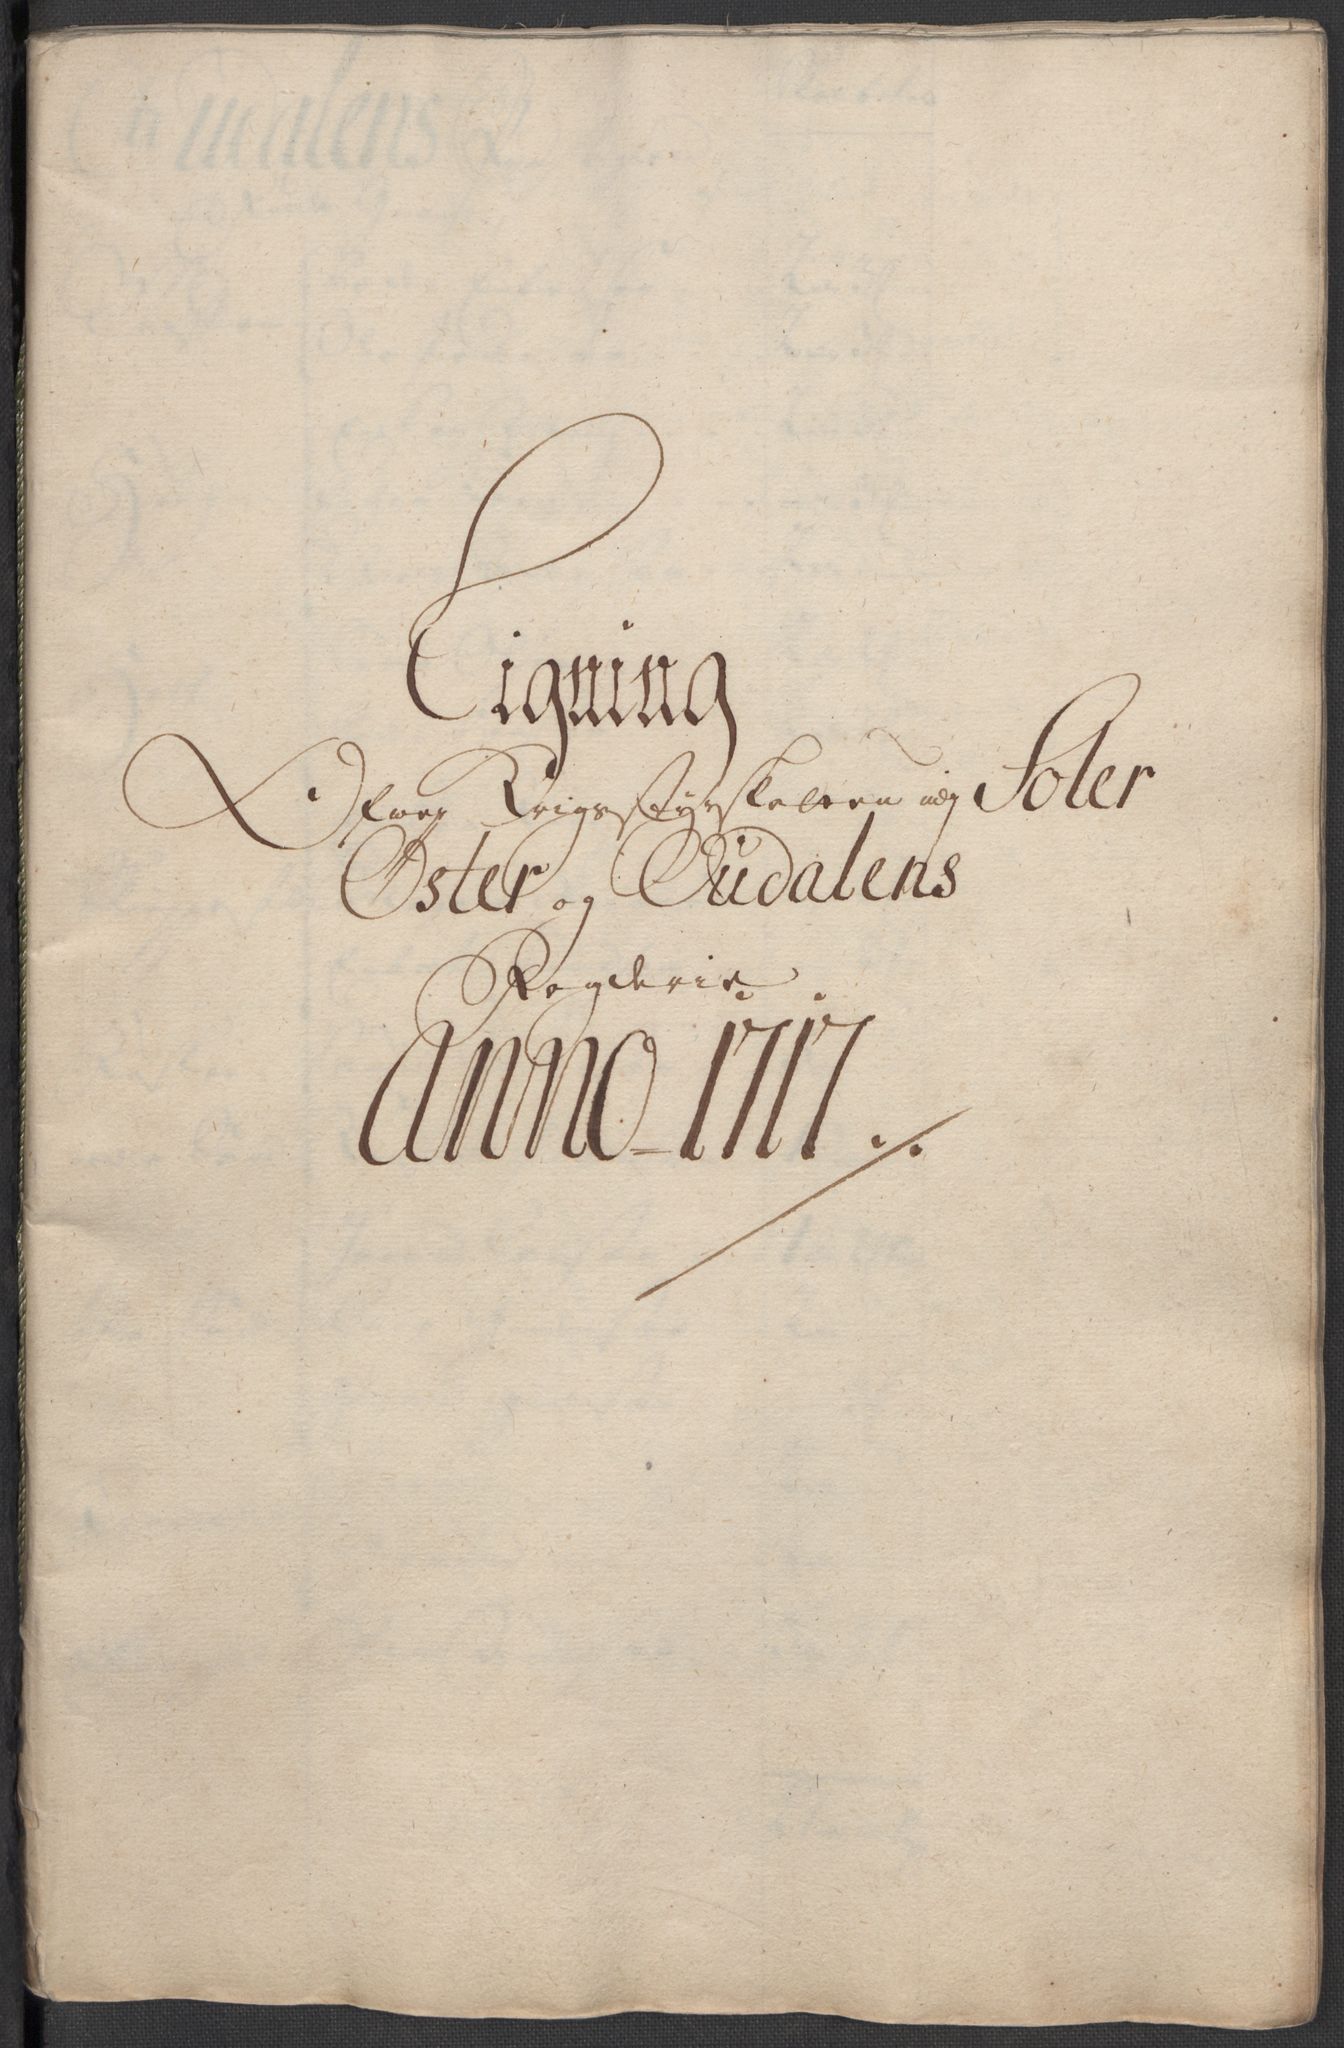 Ligning
Ofwer Krigsstyrskatten udj Soler
Øster og Oudalens
Fogderie
Anno 1717.